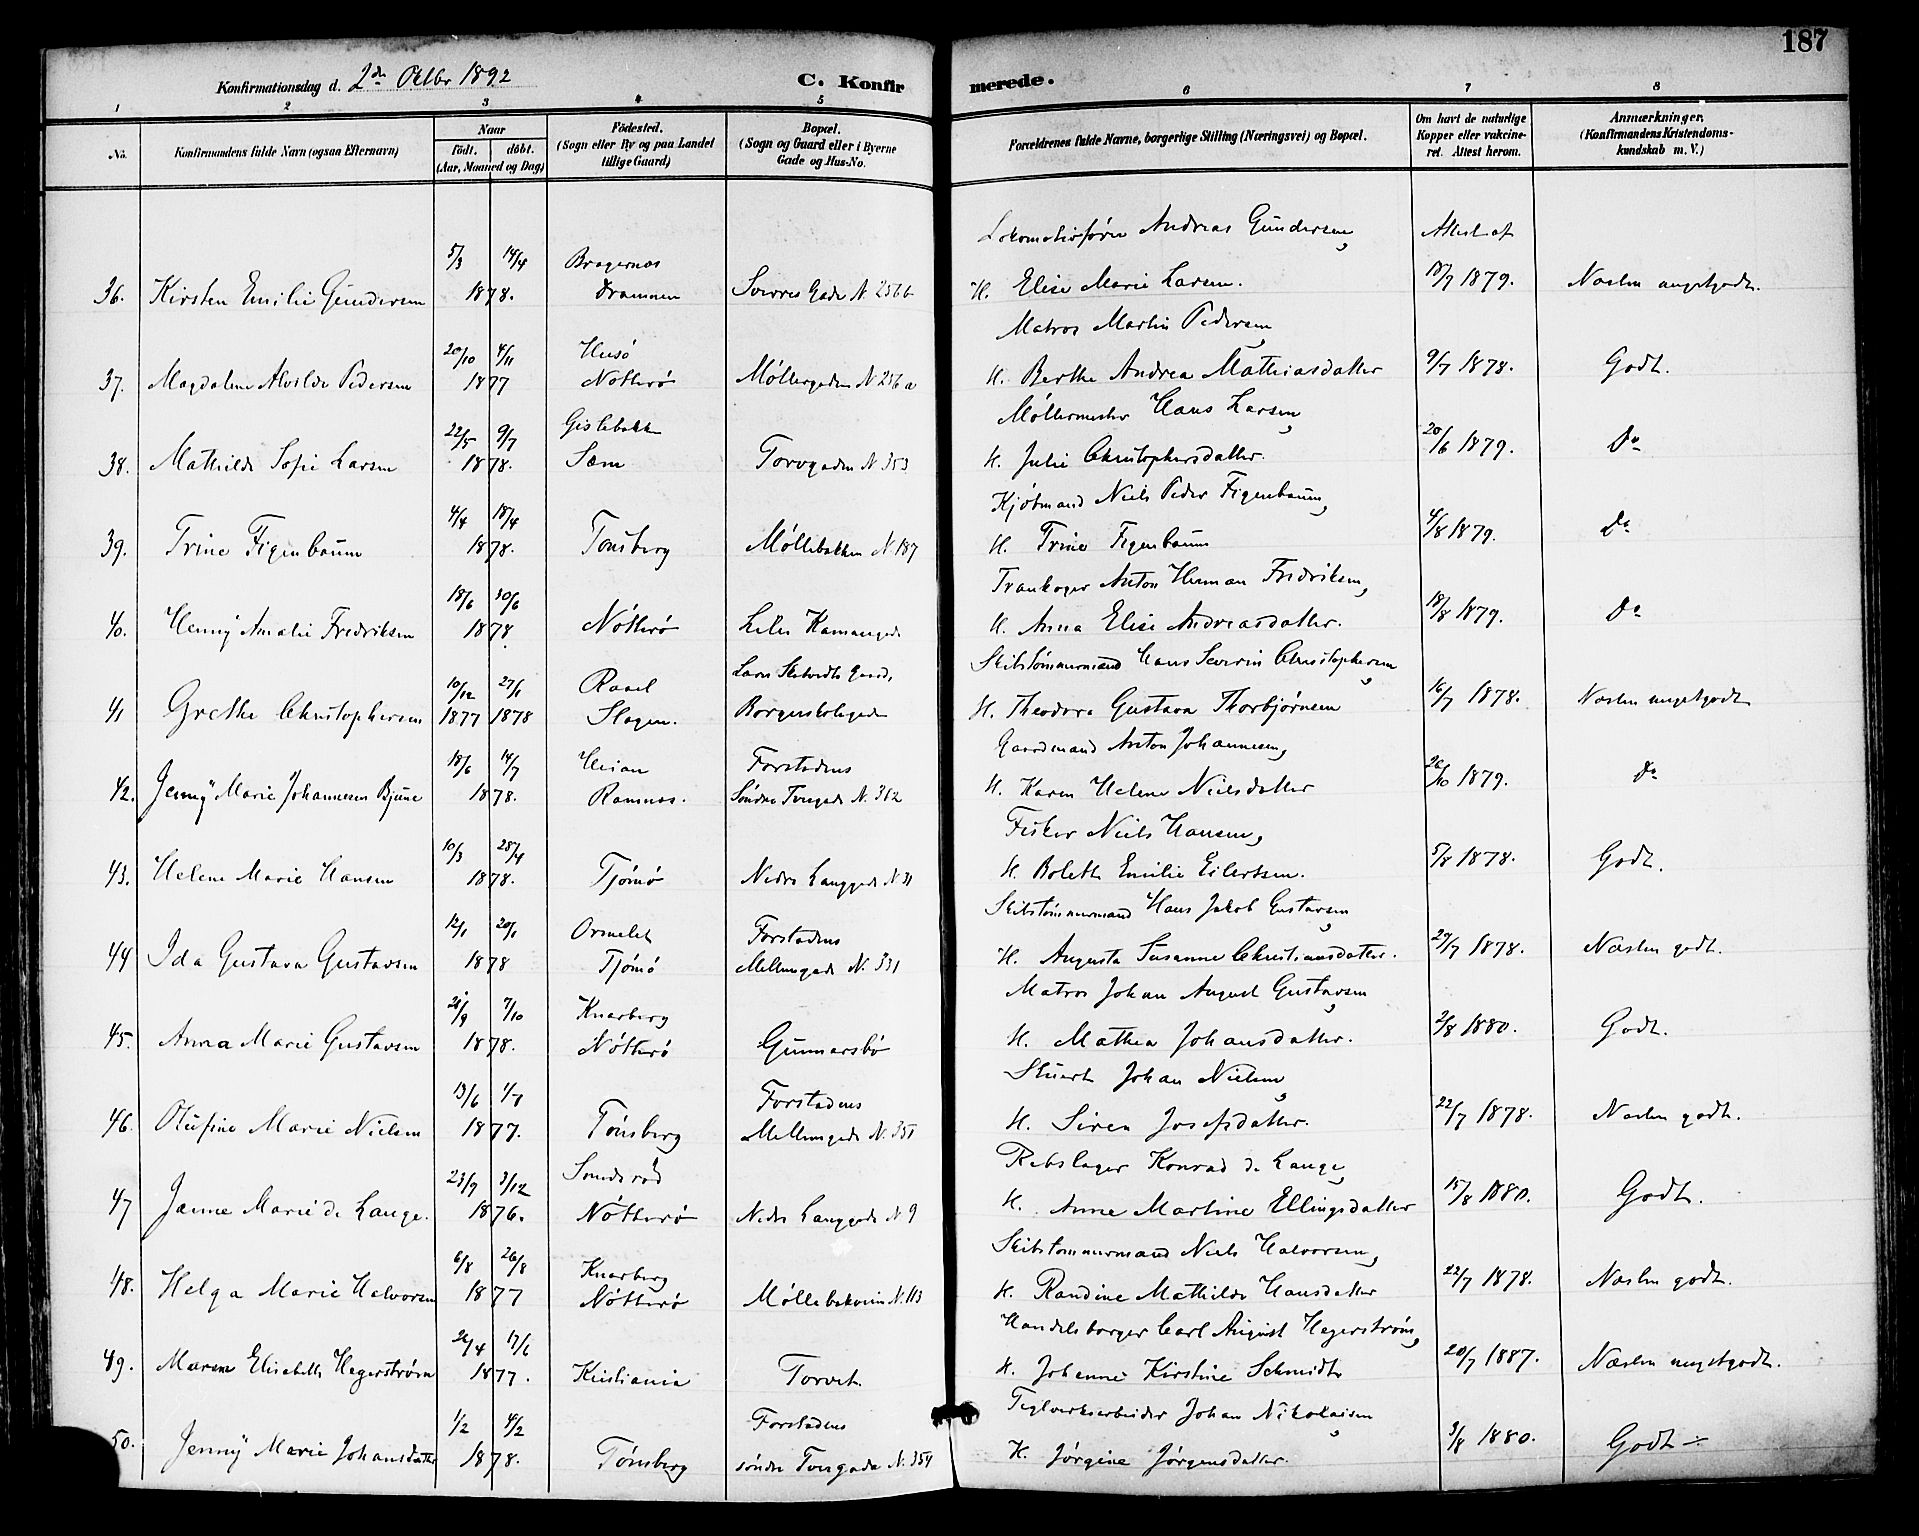 187
Konfirmationsdag d. 2de Oktbr 1892 C. Konfirmerede.
1 2 3 4 5 6 7 8
No. Konfirmandens fulde Navn (ogsaa Efternavn) Naar födt. döbt. (Aar, Maaned og Dag) Födested. (Sogn eller By og paa Landet tillige Gaard) Bopæl. (Sogn og Gaard eller i Byerne Gade og Hus-No. Forældrenes fulde Navne, borgerlige Stilling (Næringsvei) og Bopæl. Om havt de naturlige Kopper eller vakcineret. Attest herom. Anmærkninger. (Konfirmandens Kristendomskundskab m. V.)
5/3 14/4 Bragernæs Lokomotivfører Andreas Gundersen, Attest af
36. Kirsten Emilie Gundersen 1878. Drammen Gade N. 256 b H. Elise Marie Larsen. 1879. Næsten megetgodt.
20/10 4/11 Husö Matros Martin Pedersen,
37. Magdalene Alvilde Pedersen 1877 Nötterö Möllergaden N 256 a H. Berthe Andrea Mathiasdatter 9/7 1878. Godt.
22/5 9/7 Gislebakken Möllermester Hans Larsen,
38. Mathilde Sofie Larsen 1878. Sæm Torvgaden N. 353 H. Julie Christophersdatter. 20/6 1879. Do
4/4 18/4 Kjöbmand Niels Peder Figenbaum,
39. Trine Figenbaum 1878. Tönsberg Möllebakken N. 187 H. Trine Figenbaum 4/8 1879. Do
18/6 30/6 Trankoger Anton Herman Fredriksen,
40. Henny Amalie Fredriksen 1878. Nötterö Lille Kamangade H. Anna Elise Andreasdatter. 18/8 1879. Do
10/12 27/1 Raael Lars Gaard, Skibstömmermand Hans Severin Christophersen,
41 Grethe Christophersen 1877 1878 Slagen. Borgeskolegade H. Theodora Gustava Thorbjørnsen 16/7 1878. Næsten megetgodt
18/6 14/7 Forstadens Gaardmand Anton Johannesen,
42. Jenny Marie Johannesen Bjune 1878. Ramnæs. Söndre Torvgade N. 312 H. Karen Helene Nielsdatter 26/10 1879. Do
10/3 28/4 Fisker Niels Hansen,
43. Helene Marie Hansen 1878. Tjömö Nedre Langgade N 31 H. Boleth Emilie Eilertsen. 5/8 1878. Godt.
12/1 20/1 Ormelet Forstadens Skibstömmermand Hans Jakob Gustavsen,
44 Ida Gustava Gustavsen 1878 Tjömö Mellemgade N. 331 H. Augusta Susanne Christiansdatter. 29/7 1878. Næsten godt.
21/9 7/10 Knarberg Matros Johan August Gustavsen,
45. Anna Marie Gustavsen 1878. Nötterö Gunnarsbö H. Mathea Johansdatter. 2/8 1880. Godt.
13/6 1/7 Forstadens Stuert Johan Nielsen,
46. Olufine Marie Nielsen 1877. Tönsberg Mellemgade N. 351 H. Siren Josefsdatter. 22/7 1878. Næsten godt.
23/9 3/12 Smideröd Rebslager Konrad de Lange,
47 Janne Marie de Lange. 1876. Nötterö Nedre Langgade N 9 H. Anne Martine Ellingsdatter 15/8 1880. Godt.
6/8 26/8 Knarberg Skibstömmermand Niels Halvorsen,
48. Helga Marie Halvorsen 1877 Nötterö Möllebakveien N. 113 H. Randine Mathilde Hansdatter 22/7 1878. Næsten godt.
24/4 17/6 Handelsborger Carl August Hegerström,
49. Maren Elisabeth Hegerström 1877. Kristiania Torvet. H. Johanne Kirstine Schmidt 20/7 1887. Næsten megetgodt.
1/2 4/2 Forstadens Teglverksarbeider Johan Nikolaisen,
50. Jenny Marie Johansdatter 1878. Tönsberg söndre Torvgade N. 354 H. Jörgine Jörgensdatter. 3/8 1880. Godt ÷